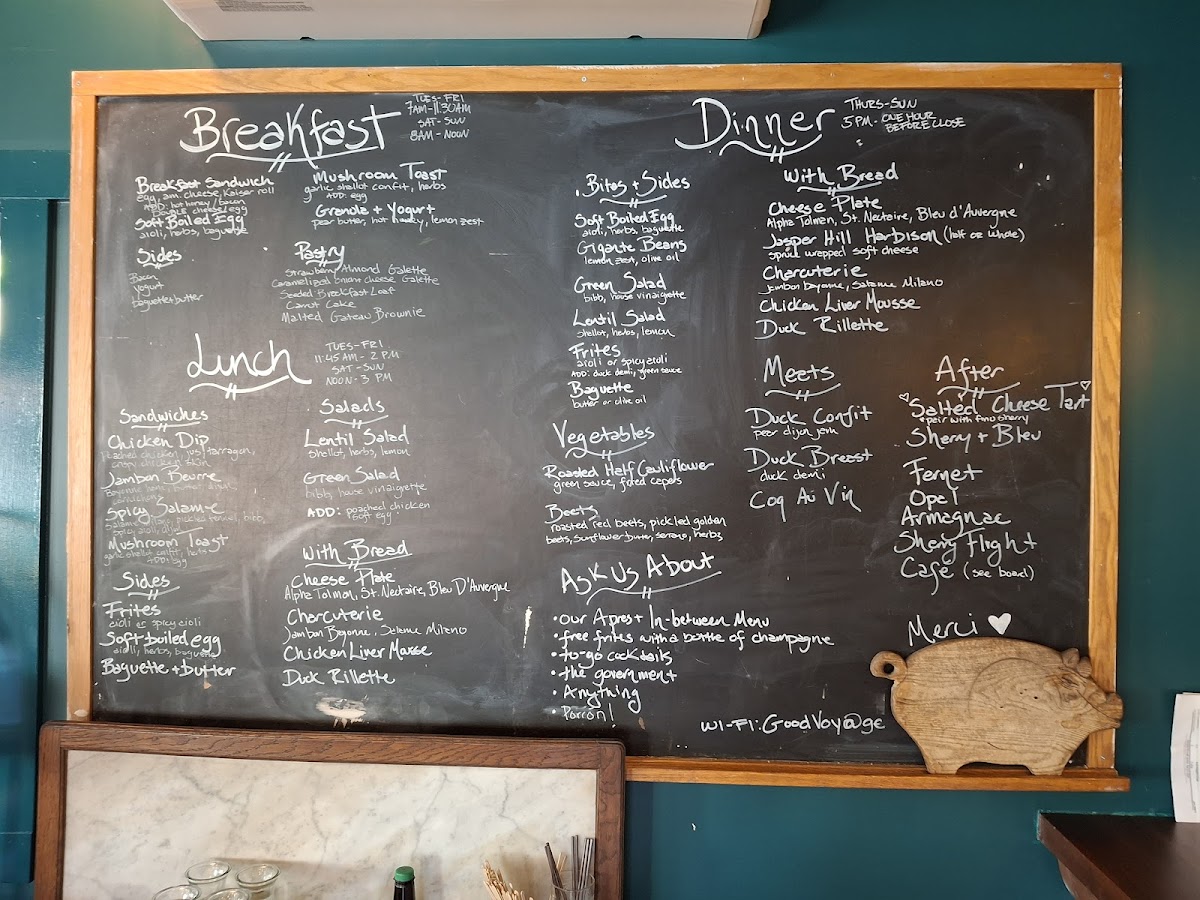 Breakfast
TUES-FRI
7AM-11:30AM
SAT-SUN
8AM-NOON
Breakfast Sandwich
egg, am. cheese, Kaiser roll
ADD: hot honey/bacon
double cheese/egg
Soft Boiled Egg
aioli, herbs, baguette
Sides
Bacon
yogurt
baguette+butter
Mushroom Toast
garlic shallot confit, herbs
ADD: egg
Granola + Yogurt
pear butter, hot honey, lemon zest
Pastry
Strawberry Almond Galette
Caramelized onion cheese Galette
Seeded Breakfast Loaf
Carrot Cake
Malted Gateau Brownie
Lunch
TUES-FRI
11:45AM-2PM
SAT-SUN
NOON-3 PM
Sandwiches
Chicken Dip
Poached chicken, jus, tarragon,
crispy chicken skin
Jambon Beurre
Spicy Salame
pickled fennel, bibb,
spicy aioli
Mushroom Toast
garlic shallot confit, herbs
ADD: egg
Sides
Frites
aioli or spicy aioli
Soft-boiled egg
aioli, herbs, baguette
Baguette + butter
Salads
Lentil Salad
Shallot, herbs, lemon
Green Salad
bibb, house vinaigrette
ADD: poached chicken
soft egg
With Bread
Cheese Plate
Alpha Tolman, St. Nectaire, Bleu D'Auvergne
Charcuterie
Jambon Bayonne, Salame Milano
Chicken Liver Mousse
Duck Rillette
Dinner
THURS-SUN
5PM-ONE HOUR
BEFORE CLOSE
Bites + Sides
Soft Boiled Egg
aioli, herbs, baguette
Gigante Beans
lemon zest, olive oil
Green Salad
bibb, house vinaigrette
Lentil Salad
shallot, herbs, lemon
Frites
aioli or spicy aioli
ADD: duck demi, green sauce
Baguette
butter or olive oil
Vegetables
Roasted Half Cauliflower
green sauce, fried capers
Beets
roasted red beets, pickled golden
beets, sunflower butter, serrano, herbs
Ask Us About
• our Apres + In-between Menu
• free frites with a bottle of champagne
• to-go cocktails
• the government
• Anything
• Porron!
With Bread
Cheese Plate
Alpha Tolman, St. Nectaire, Bleu d'Auvergne
Jasper Hill Harbison (half or whole)
spruce wrapped soft cheese
Charcuterie
jambon bayonne, Salame Milano
Chicken Liver Mousse
Duck Rillette
Meats
Duck Confit
pear dijon jam
Duck Breast
duck demi
Coq Au Vin
After
Salted Cheese Tart
pair with fino sherry
Sherry + Bleu
Fernet
Opal
Armagnac
Sherry Flight
Cafe (see board)
Merci
WI-FI: GoodVoy@ge